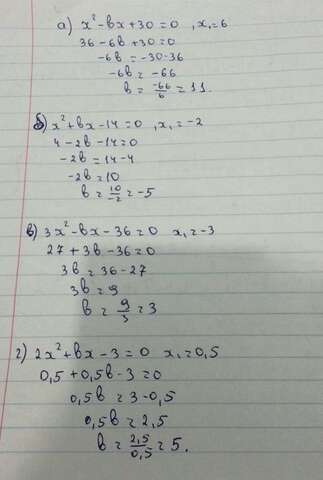 а) x² - вx + 30 = 0 , x₁ = 6
36 - 6в + 30 = 0
-6в = -30-36
-6в = -66
в = -66/6 = 11.
б) x² + вx - 14 = 0 , x₁ = -2
4 - 2в - 14 = 0
-2в = 14 - 4
-2в = 10
в = 10/-2 = -5
в) 3x² - вx - 36 = 0 x₁ = -3
27 + 3в - 36 = 0
3в = 36 - 27
3в = 9
в = 9/3 = 3
г) 2x² + вx - 3 = 0 x₁ = 0,5
0,5 + 0,5в - 3 = 0
0,5в = 3 - 0,5
0,5в = 2,5
в = 2,5/0,5 = 5.